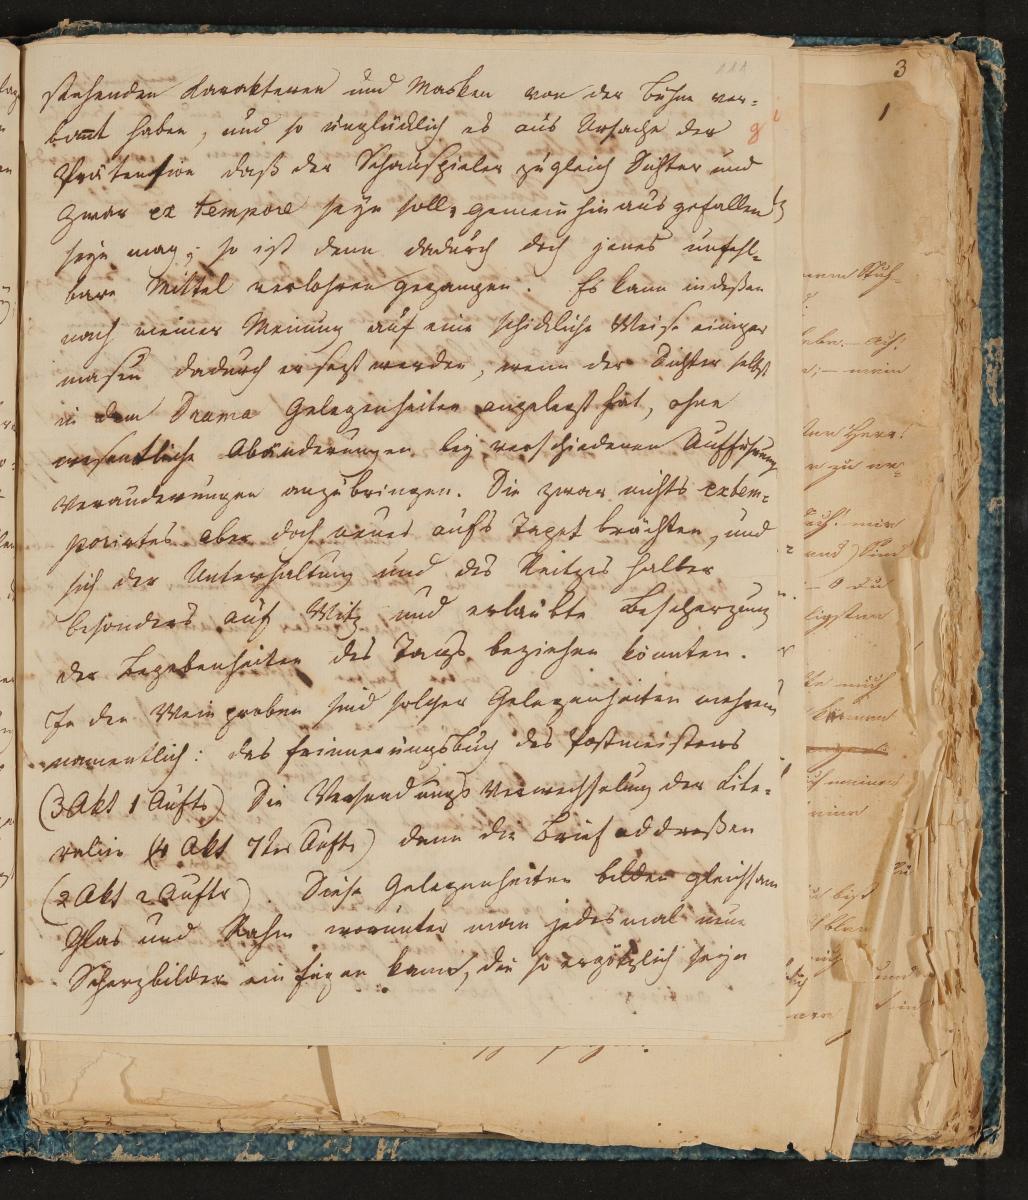 stehenden Karakteren und Masken von der Bühne ver-
bannt haben, und so unglücklich es aus Ursache der
Prätension daß der Schauspieler zugleich Dichter und
zwar ex tempore seyn soll, gemeinhin ausgefallen
seyn mag; so ist denn dadurch doch jenes unfehl-
bare Mittel verlohren gegangen. Es kann indeßen
nach meiner Meinung auf eine schickliche Weise einiger
masen dadurch ersezt werden, wenn der Dichter selbst
in dem Drama Gelegenheiten angelegt hat, ohne
wesentliche Abänderungen bey verschiedenen Aufführung
Veränderungen anzubringen. Die zwar nichts extem-
porirtes aber doch neues aufs Tapet brächten, und
sich der Unterhaltung und des Reitzes halber
besonders auf Witz und erlaubte Bescherzung
der Begebenheiten des Tags beziehen könnten.
In den Weinproben sind solcher Gelegenheiten mehrere
namentlich: das Erinnerungsbuch des Postmeisters
(3 Akt 1 Auftr) Die Versendungs Verwechselung der Lite-
ralien (4 Akt 7ter Auftr) dann die Briefaddreßen
(2 Akt 2 Auftr). Diese Gelegenheiten bilden gleichsam
Glas und Rahm worunter man jedesmal neue
Scherzbilder einfügen kann, die so ergötzlich seyn
3
1